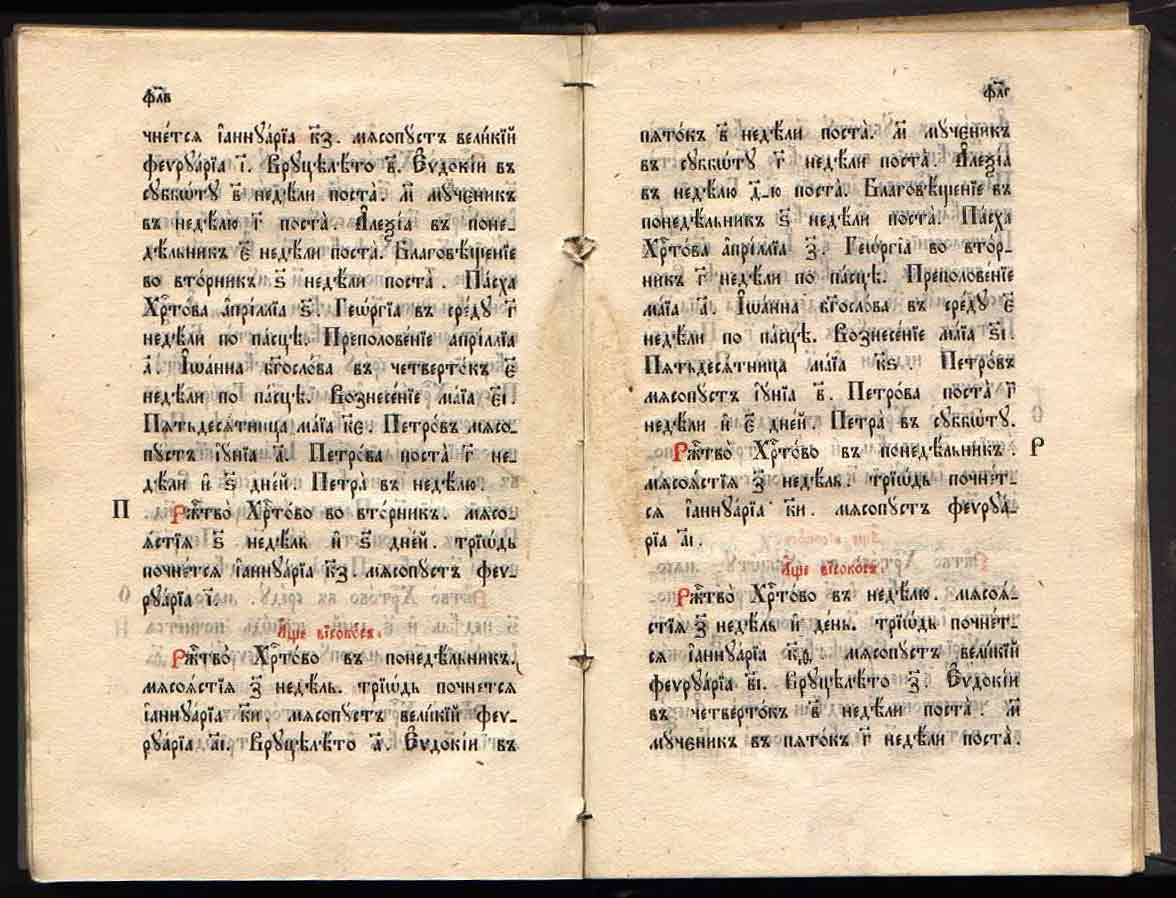 фл҃в
чне́тсѧ і҆аннꙋа́рїа к҃з. мѧсопꙋ́стъ вели́кїй
феѵрꙋа́рїа і҃. Врꙋцѣлѣ́то в҃. Є҆ѵдокі́и въ
сꙋббѡ́тꙋ в҃ недѣ́ли поста̀. м҃ мꙋ́ченикъ
въ недѣ́лю г҃ поста̀. А҆леѯі́а въ поне-
дѣ́льникъ є҃ недѣ́ли поста̀. Благовѣ́щенїе
во вто́рникъ ѕ҃ недѣ́ли поста̀. Па́сха
Хрⷭ҇то́ва а҆прі́ллїа ѕ҃. Геѡ́ргїа въ сре́дꙋ г҃
недѣ́ли по па́сцѣ. Преполове́нїе а҆прі́ллїа
л҃. І҆ѡа́нна бг҃осло́ва въ четверто́къ є҃
недѣ́ли по па́сцѣ. Вознесе́нїе ма́їа є҃і.
Пѧтьдесѧ́тница ма́їа к҃є. Петро́въ мѧсо-
пꙋ́стъ і҆ꙋ́нїа а҃. Петро́ва поста̀ г҃ не-
дѣ́ли и҆ ѕ҃ дне́й. Петра̀ въ недѣ́лю.
П
Ржⷭ҇тво̀ Хрⷭ҇то́во во вто́рникъ. мѧсо-
ѧ́стїѧ ѕ҃ недѣ́ль и҆ ѕ҃ дне́й. трїѡ́дь
почне́тсѧ і҆аннꙋа́рїа к҃з. мѧсопꙋ́стъ феѵ-
рꙋа́рїа і҃.
А҆́ще високо́съ.
Ржⷭ҇тво̀ Хрⷭ҇то́во въ понедѣ́льникъ.
мѧсоѧ́стїѧ з҃ недѣ́ль. трїѡ́дь почне́тсѧ
і҆аннꙋа́рїа к҃и. мѧсопꙋ́стъ вели́кїй феѵ-
рꙋа́рїа а҃і. Врꙋцѣлѣ́то а҃. Є҆ѵдокі́и въ
фл҃г
пѧто́къ в҃ недѣ́ли поста̀. м҃ мꙋ́ченикъ
въ сꙋббѡ́тꙋ г҃ недѣ́ли поста̀. А҆леѯі́а
въ недѣ́лю д҃-ю поста̀. Благовѣ́щенїе въ
понедѣ́льникъ ѕ҃ недѣ́ли поста̀. Па́сха
Хрⷭ҇то́ва а҆прі́ллїа з҃. Геѡ́ргїа во вто́р-
никъ г҃ недѣ́ли по па́сцѣ. Преполове́нїе
ма́їа а҃. І҆ѡа́нна бг҃осло́ва въ сре́дꙋ є҃
недѣ́ли по па́сцѣ. Вознесе́нїе ма́їа ѕ҃і.
Пѧтьдесѧ́тница ма́їа к҃ѕ. Петро́въ
мѧсопꙋ́стъ і҆ꙋ́нїа в҃. Петро́ва поста̀ г҃
недѣ́ли и҆ є҃ дне́й. Петра̀ въ сꙋббѡ́тꙋ.
Ржⷭ҇тво̀ Хрⷭ҇то́во въ понедѣ́льникъ. Р
мѧсоѧ́стїѧ з҃ недѣ́ль. трїѡ́дь почне́т-
сѧ і҆аннꙋа́рїа к҃и. мѧсопꙋ́стъ феѵрꙋа́-
рїа а҃і.
А҆́ще високо́съ.
Ржⷭ҇тво̀ Хрⷭ҇то́во въ недѣ́лю. мѧсоѧ́-
стїѧ з҃ недѣ́ль и҆ де́нь. трїѡ́дь почне́т-
сѧ і҆аннꙋа́рїа к҃ѳ. мѧсопꙋ́стъ вели́кїй
феѵрꙋа́рїа в҃і. Врꙋцѣлѣ́то з҃. Є҆ѵдокі́и
въ четверто́къ в҃ недѣ́ли поста̀. м҃
мꙋ́ченикъ въ пѧто́къ г҃ недѣ́ли поста̀.